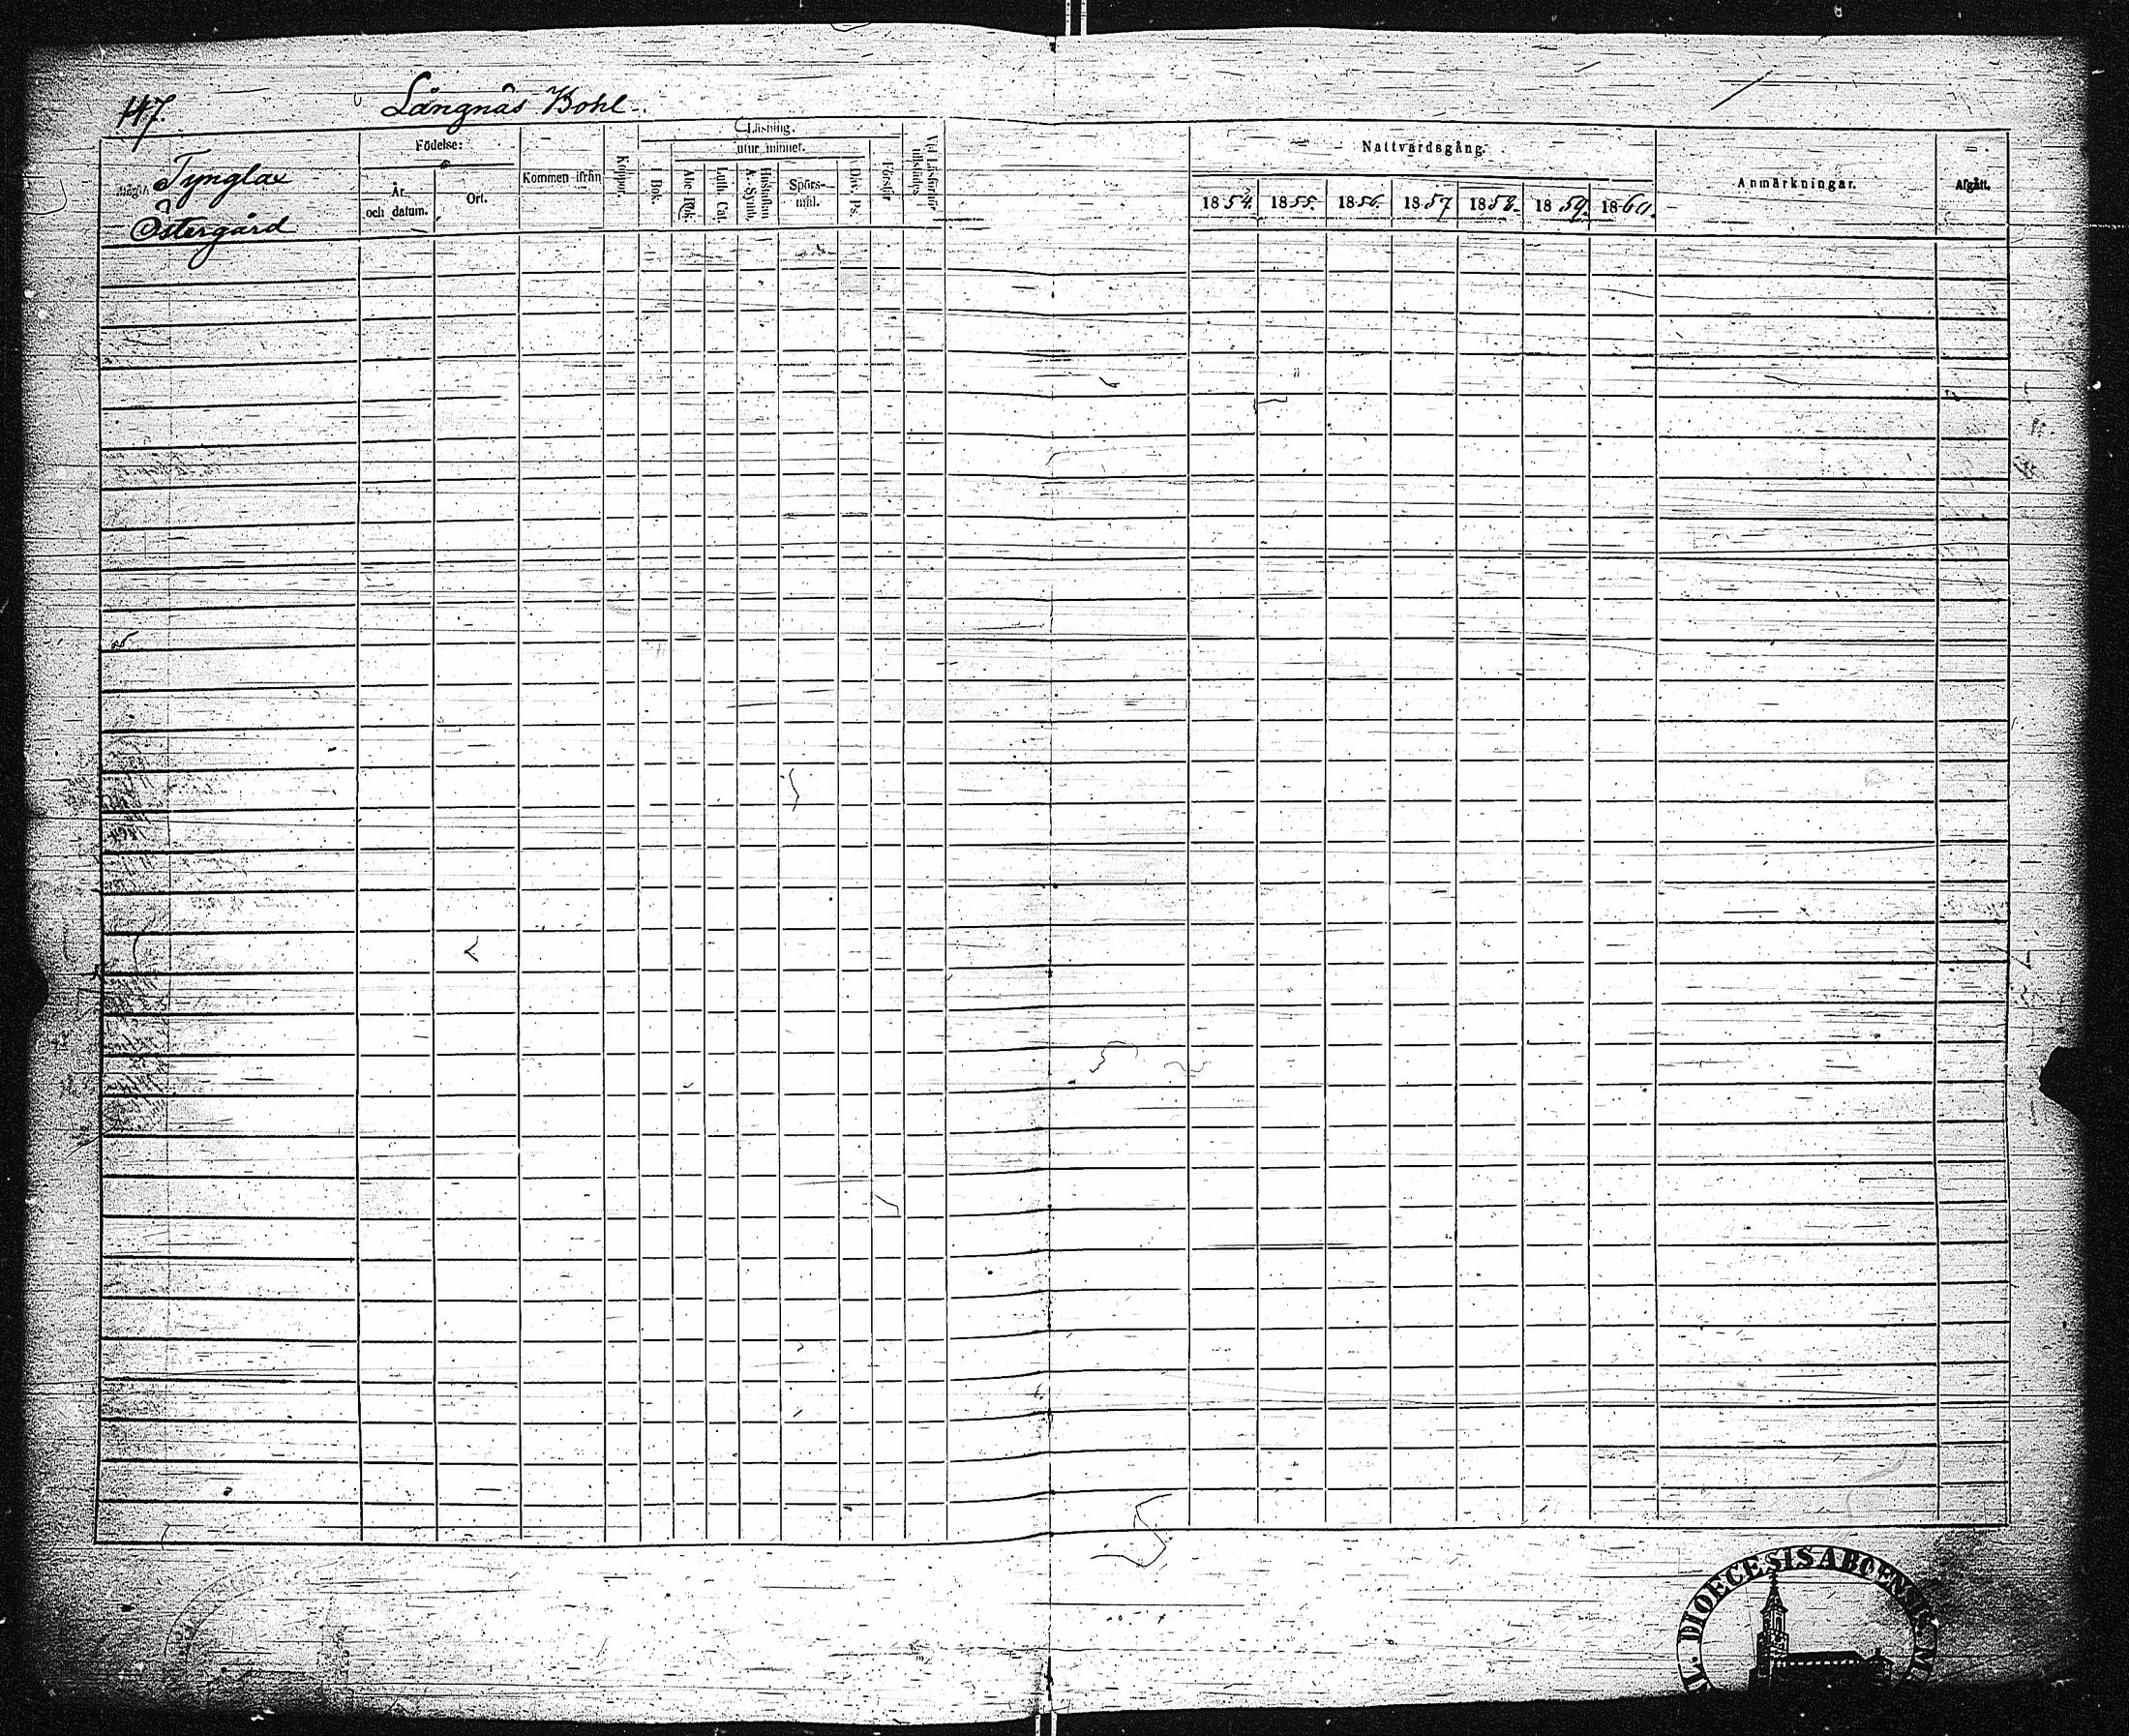 147.
Långnäs Bohl.
Tynglax
Östergård
Födelse:
År
och datum.
Ort.
Kommen ifrån
Koppor.
Läsning.
utur minnet.
I Bok.
Abc Bok.
Luth. Cat.
Hustaflan
A. Symb.
Spörs-
mål.
Dav. Ps.
Förstår
Vid Läsförhör
tillstädes
Nattvardsgång.
1854.
1855.
1856.
1857
1858.
1859.
1860.
Anmärkningar.
Afgått.
DIOECESIS ABOENSIS